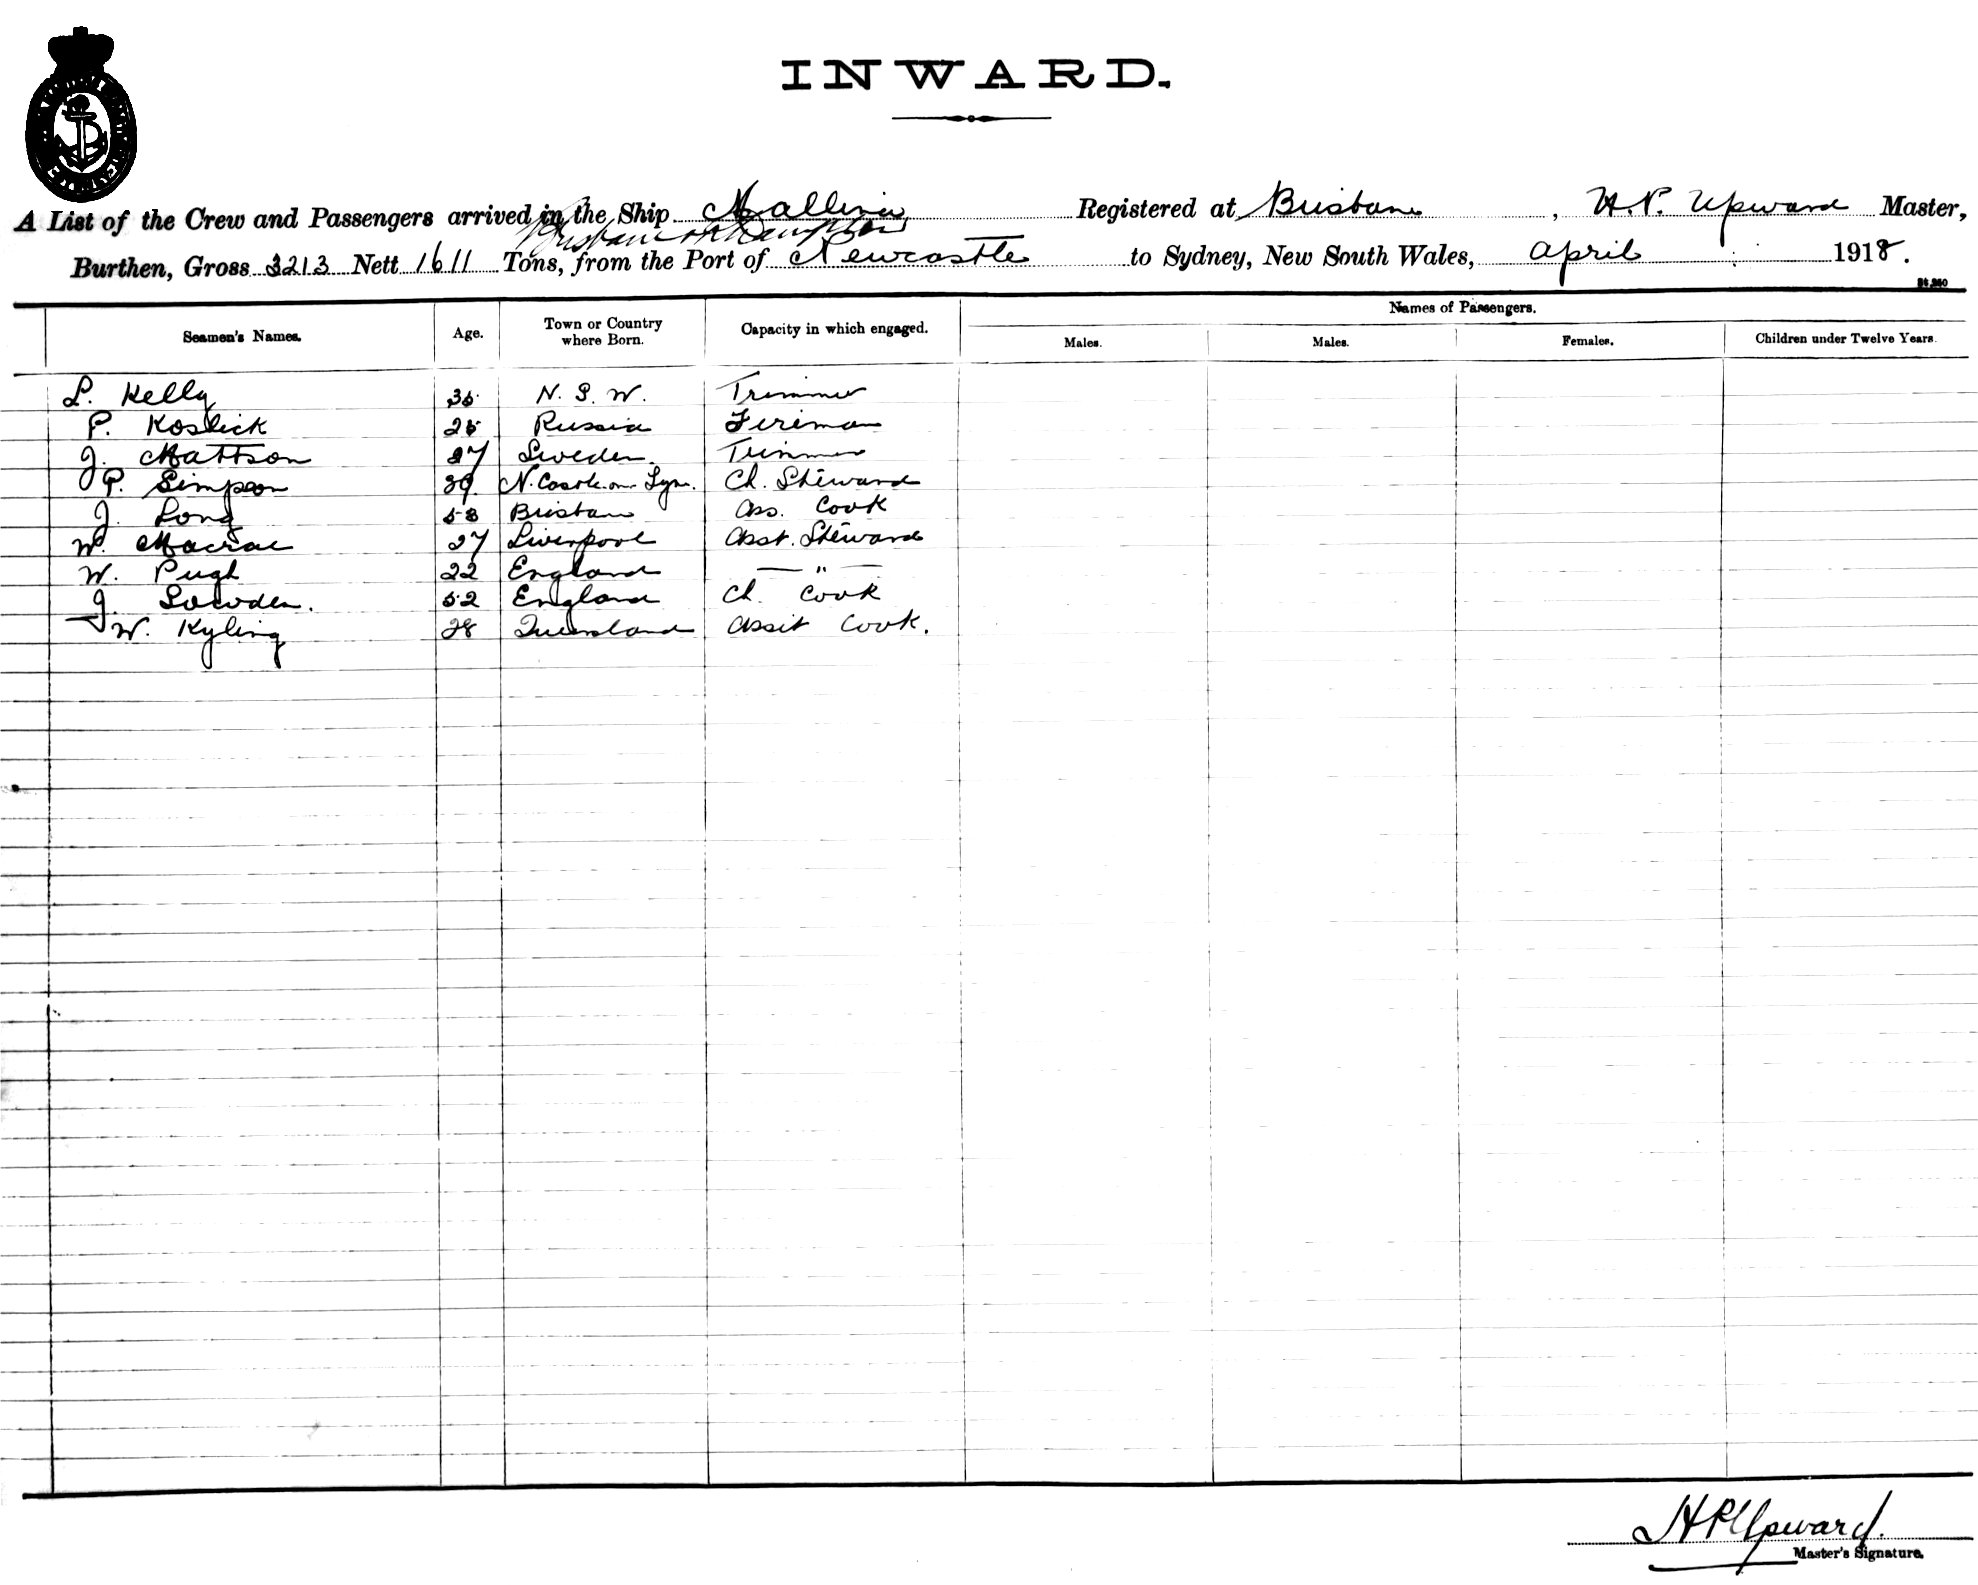 INWARD.
A List of the Crew and Passengers arrived in the Ship Mallina Registered at Brisbane, H.P. Upward Master,
Brisbane
Burthen, Gross 3213 Nett 1611 Tons, from the Port of Newcastle to Sydney, New South Wales, April 1918.
Names of Passengers.
Seamen's Names. Age. Town or Country where Born. Capacity in which engaged. Males. Males. Females. Children under Twelve Years.
L. Kelly 35 N. S. W. Trimmer
P. Koslick 25 Russia Fireman
J. Mattson 27 Sweden. Trimmer
P. Simpson 39. N. Castle on Tyne. Ch. Steward
J. Long 53 Brisbane Ass. Cook
W. Macrae 27 Liverpool Asst. Steward
W. Pugh 22 England — " —
J. Lowden. 52 England Ch. Cook
W. Kyling 28 Queensland Assit Cook.
HPUpward.
Master's Signature.